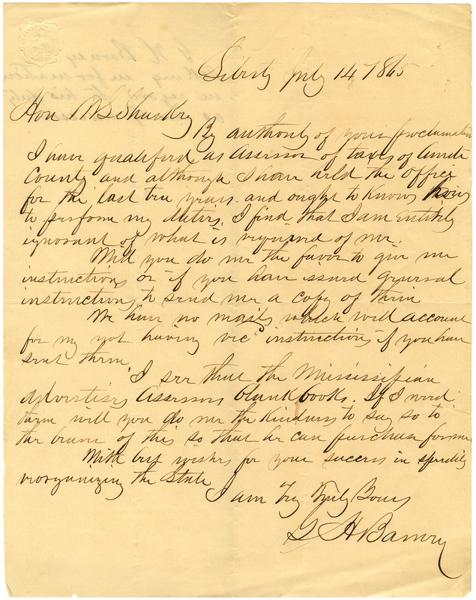 Liberty July 14 1865
Hon W L Sharkey
By authority of your proclamation
I have qualified as Assessor of taxes of Amite
County and although I have held the office
for the last ten years and ought to know how
to perform my duties, I find that I am Entirely
ignorant of what is required of me.
Will you do me the favor to give me
instructions or if you have issued general
instructions to send me a copy of them
We have no mails which will account
for my not having rec'd instructions if you have
sent them
I see that the Mississippian
advertises Assessors blank books. If I need
them will you do me the kindness to say so to
the bearer of this so that he can purchase for me
With best wishes for your success in speedily
reorganizing the State
I am Very Truly Yours
G H Barney